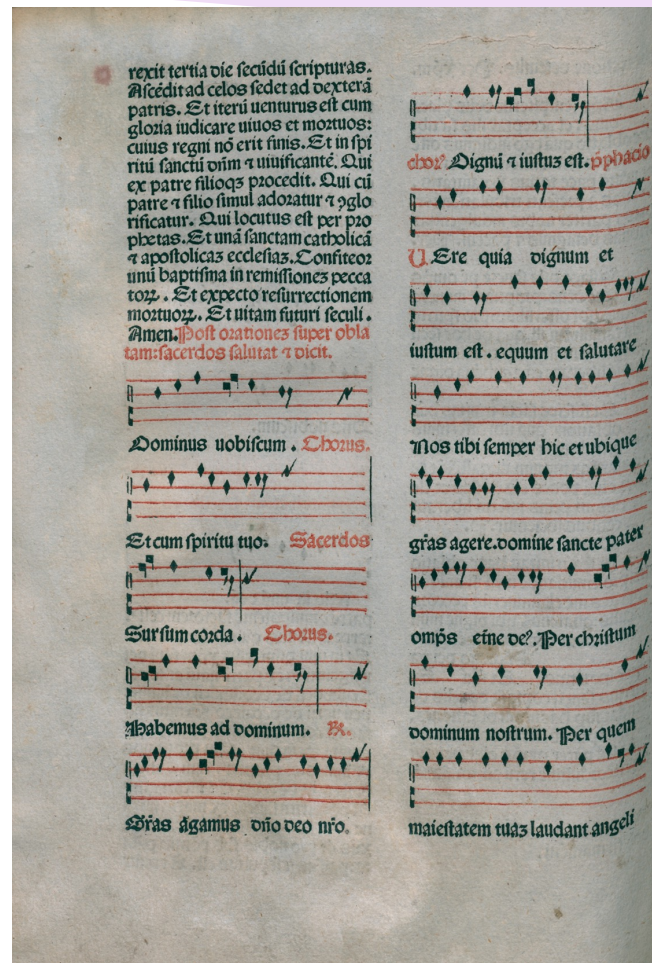 rexit tertia die secūdū scripturas.
Ascēdit ad celos sedet ad dexterā
patris. Et iterū uenturus est cum
gloria iudicare uiuos et mortuos:
cuius regni nō erit finis. Et in spi
ritū sanctū dn̄m ⁊ uiuificantē. Qui
ex patre filioqꝫ procedit. Qui cū
patre ⁊ filio simul adoratur ⁊ ꝯglo
rificatur. Qui locutus est per pro
phetas. Et unā sanctam catholicā
⁊ apostolicaꝫ ecclesiaꝫ. Confiteor
unū baptisma in remissioneꝫ pecca
toꝝ. Et expecto resurrectionem
mortuoꝝ. Et uitam futuri seculi.
Amen. Post orationeꝫ super obla
tam: sacerdos salutat ⁊ dicit.
Dominus uobiscum. Chorus.
Et cum spiritu tuo. Sacerdos
Sursum corda. Chorus.
Habemus ad dominum. ℟.
Gr̄as agamus dn̄o deo nr̄o.
chorꝰ Dignū ⁊ iustuꝫ est. p̄phacio
Vere quia dignum et
iustum est. equum et salutare
Nos tibi semper hic et ubique
gr̄as agere. domine sancte pater
omp̄s et̄ne deꝰ. Per christum
dominum nostrum. Per quem
maiestatem tuaꝫ laudant angeli